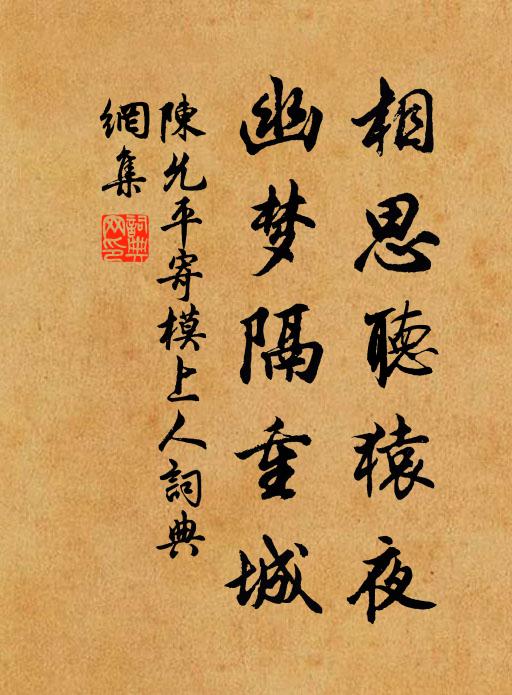 相思聽猿夜
幽梦隔重城
陳允平寄模上人詞典
網集
詞典
网印